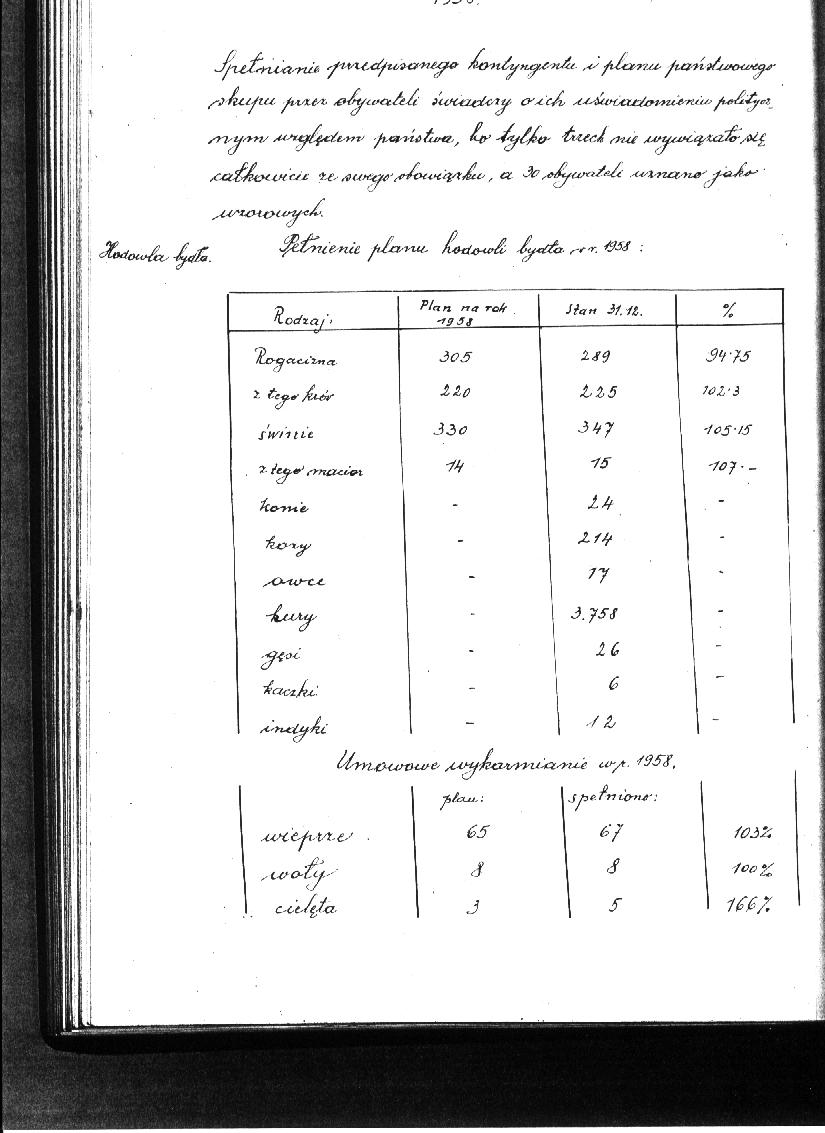 1958.
Spełnianie przedpisanego kontyngentu i planu państwowego
skupu przez obywateli świadczy o ich uświadomieniu politycz-
nym względem państwa, bo tylko trzech nie wywiązało się
całkowicie ze swego obowiązku, a 30 obywateli uznano jako
wzorowych.
Hodowla bydła. Pełnienie planu hodowli bydła w r. 1958:
Rodzaj: Plan na rok 1958 Stan 31.12. %
Rogacizna 305 289 94·75
z tego krów 220 225 102·3
świnie 330 347 105·15
z tego macior 14 15 107·-
konie - 24 -
kozy - 214 -
owce - 17 -
kury - 3.758 -
gęsi - 26 -
kaczki - 6 -
indyki - 12 -
Umowowe wykarmianie w r. 1958.
plan: spełniono:
wieprze 65 67 103%
woły 8 8 100%
cielęta 3 5 166%